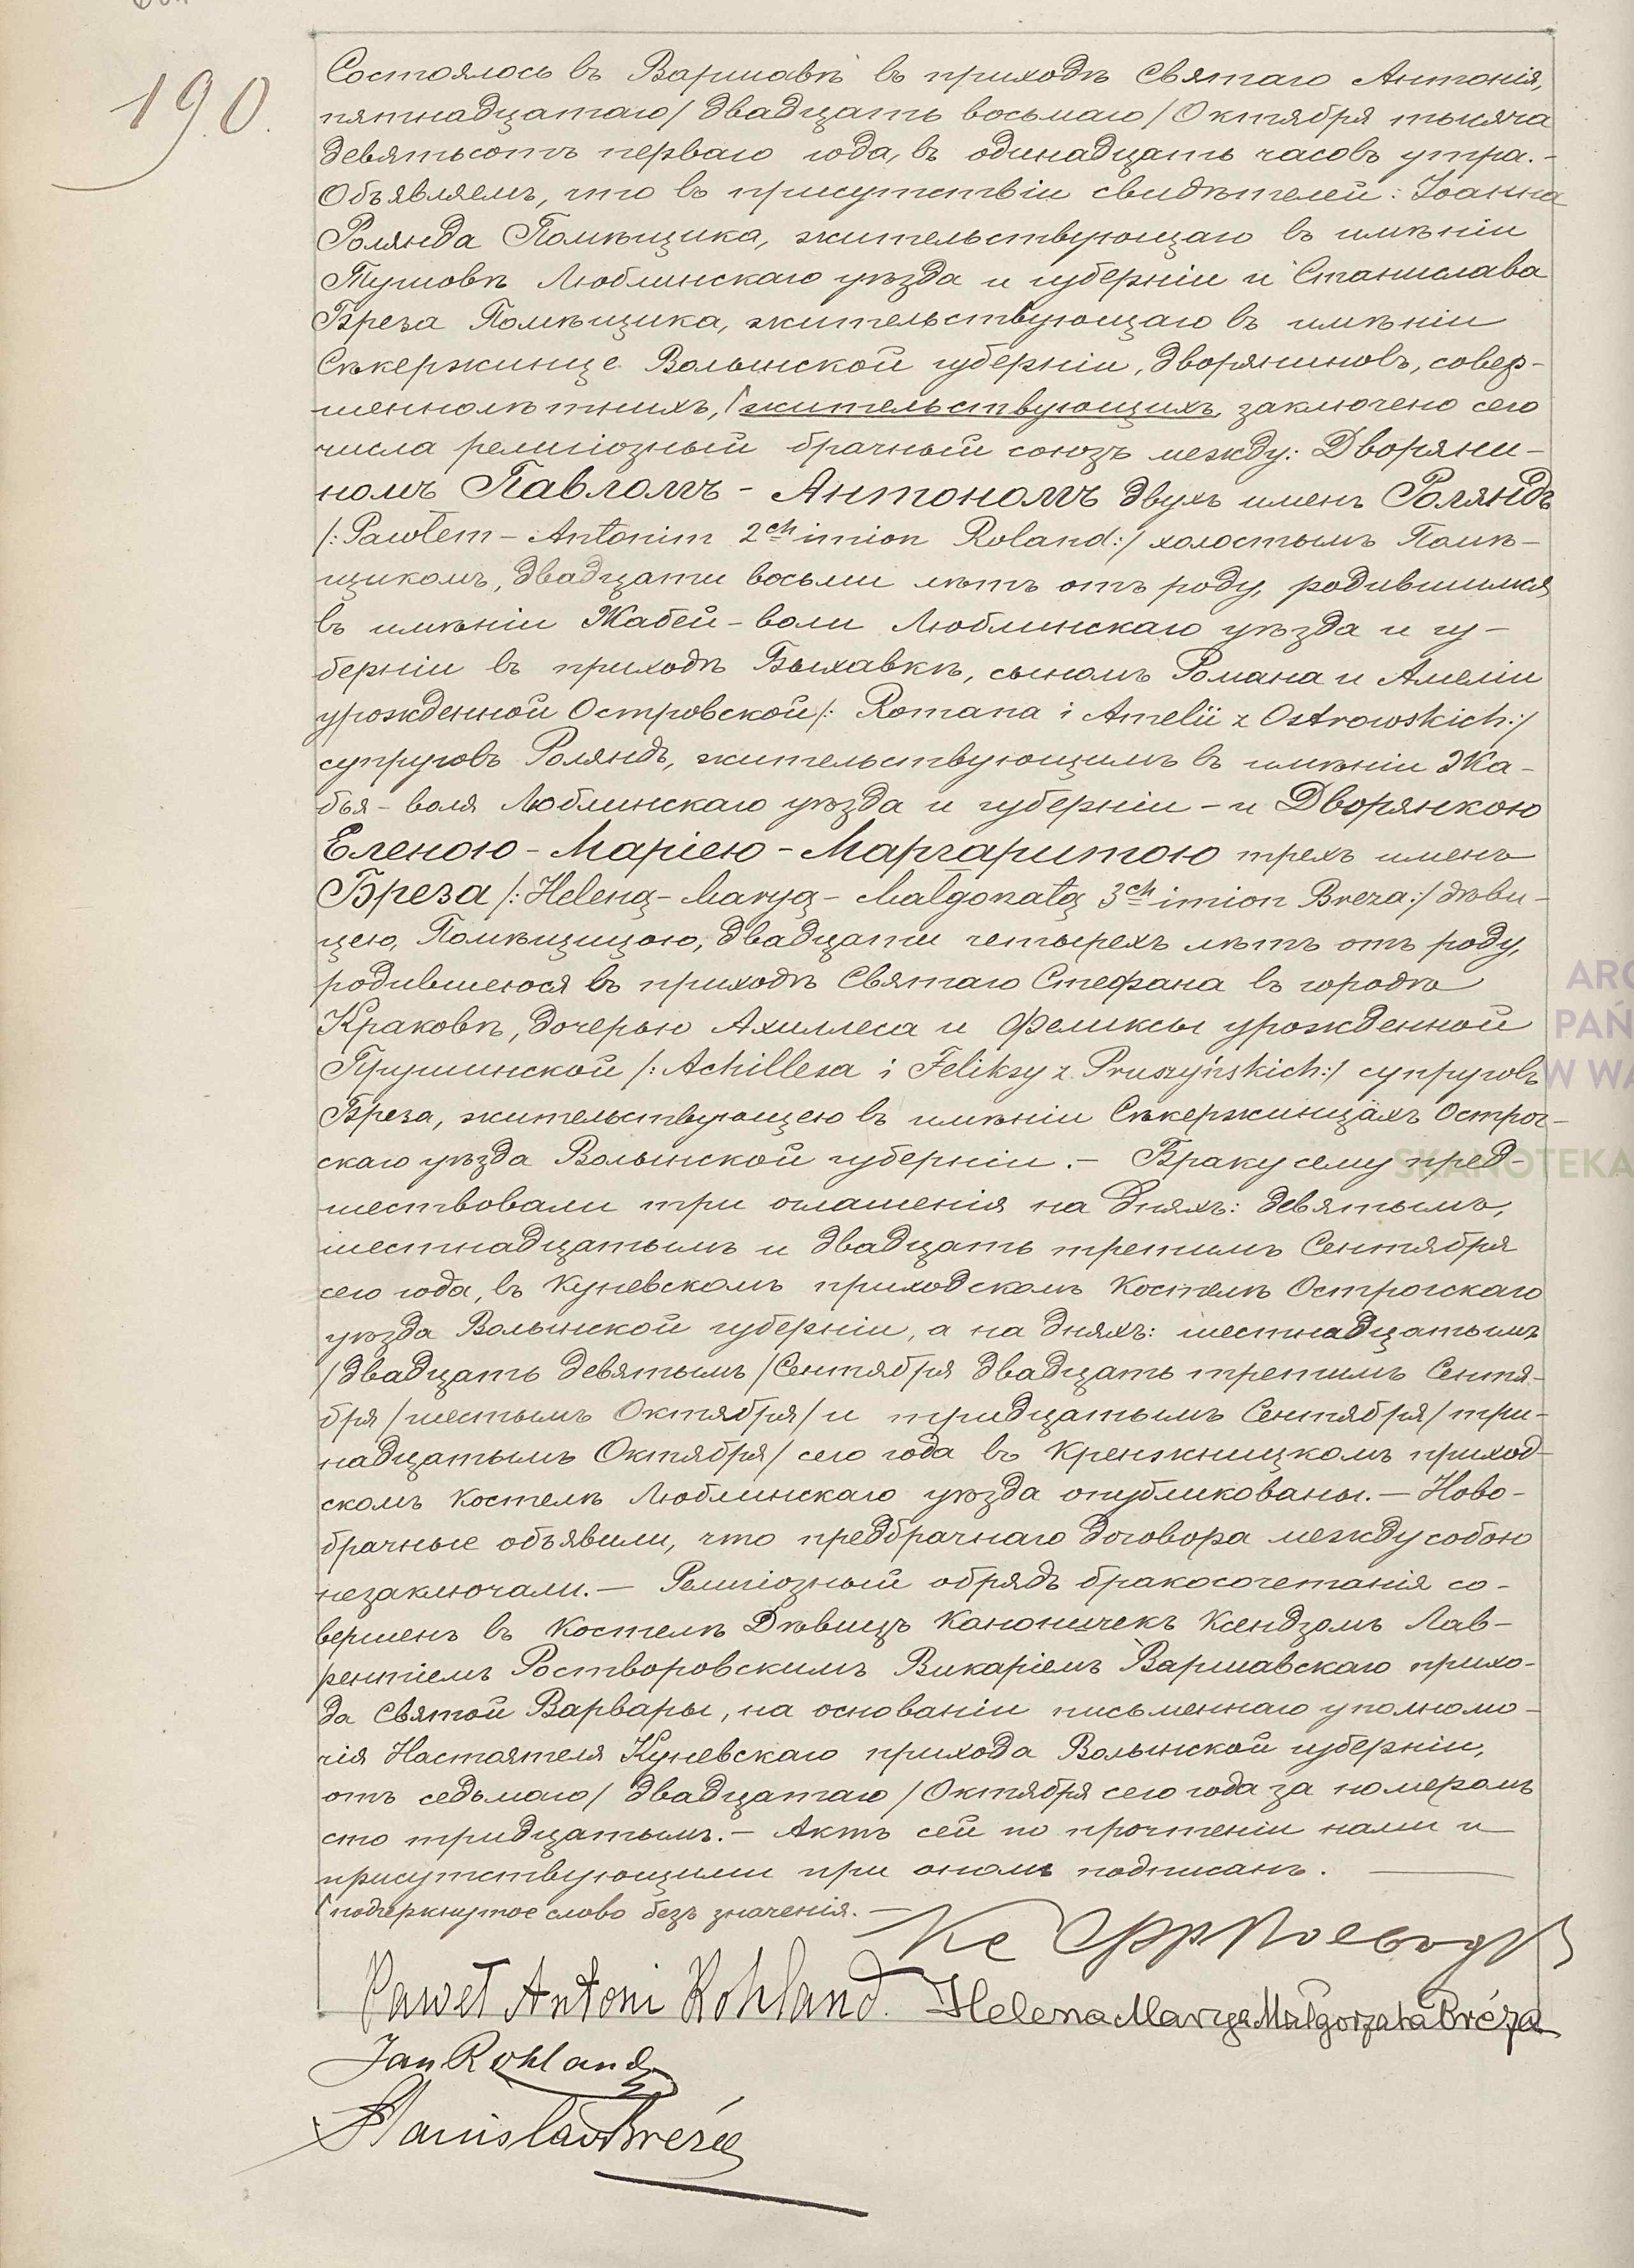 190.
Состоялось въ Варшавѣ въ приходѣ Святаго Антонія,
пятнадцатаго / двадцать восьмаго / Октября тысяча
девятьсотъ перваго года, въ одинадцать часовъ утра. -
Объявляемъ, что въ присутствіи свидѣтелей: Іоанна
Ролянда Помѣщика, жительствующаго въ имѣніи
Тушовѣ Люблинскаго уѣзда и губерніи и Станислава
Бреза Помѣщика, жительствующаго въ имѣніи
Сѣкержинце Волынской губерніи, дворяниновъ, совер-
шеннолѣтнихъ, / жительствующихъ, заключено сего
числа религіозный брачный союзъ между: Дворяни-
номъ Павломъ - Антономъ двухъ именъ Роляндъ
/: Pawłem - Antonim 2ch imion Roland :/ холостымъ Помѣ-
щикомъ, двадцати восьми лѣтъ отъ роду, родившимся
въ имѣніи Жабей - воли Люблинскаго уѣзда и гу-
берніи въ приходѣ Быхавкѣ, сыномъ Романа и Амеліи
урожденной Островской /: Romana i Amelii z Ostrowskich :/
супруговъ Ролянд, жительствующимъ въ имѣніи Жа-
бья - воля Люблинскаго уѣзда и губерніи - и Дворянкою
Еленою - Маріею - Маргаритою трехъ именъ
Бреза /: Heleną - Maryą - Małgorzatą 3ch imion Breza :/ дѣви-
цею, Помѣщицею, двадцати четырехъ лѣтъ отъ роду,
родившеюся въ приходѣ Святаго Стефана въ городѣ
Краковѣ, дочерью Ахиллеса и Феликсы урожденной
Прушинской /: Achillesa i Feliksy z Pruszyńskich :/ супруговъ
Бреза, жительствующею въ имѣніи Сѣкержинцахъ Острог-
скаго уѣзда Волынской губерніи. - Браку сему пред-
шествовали три оглашенія на дняхъ: девятымъ,
шестнадцатымъ и двадцать третимъ Сентября
сего года, въ Куневскомъ приходскомъ Костелѣ Острогскаго
уѣзда Волынской губерніи, а на дняхъ: шестнадцатымъ
/ двадцать девятымъ / Сентября двадцать третимъ Сентя-
бря / шестымъ Октября / и тридцатымъ Сентября / три-
надцатымъ Октября / сего года въ Кренжницкомъ приход-
скомъ Костелѣ Люблинскаго уѣзда опубликованы. - Ново-
брачные объявили, что предбрачнаго договора между собою
незаключали. - Религіозный обрядъ бракосочетанія со-
вершенъ въ Костелѣ Дѣвицъ Каноничекъ Ксендзомъ Лав-
рентіемъ Ростворовскимъ Викаріемъ Варшавскаго прихо-
да Святой Варвары, на основаніи письменнаго уполномо-
чія Настоятеля Куневскаго прихода Волынской губерніи,
отъ седьмаго / двадцатаго / Октября сего года за номеромъ
сто тридцатымъ. - Актъ сей по прочтеніи нами и
присутствующими при ономъ подписанъ.
/ подчеркнутое слово безъ значенія. -
Кс
Paweł Antoni Rohland. Helena Marya Małgorzata Bréza
Jan Rohland
Stanisław Bréza
ARC
PAŃ
W WA
SKANOTEKA